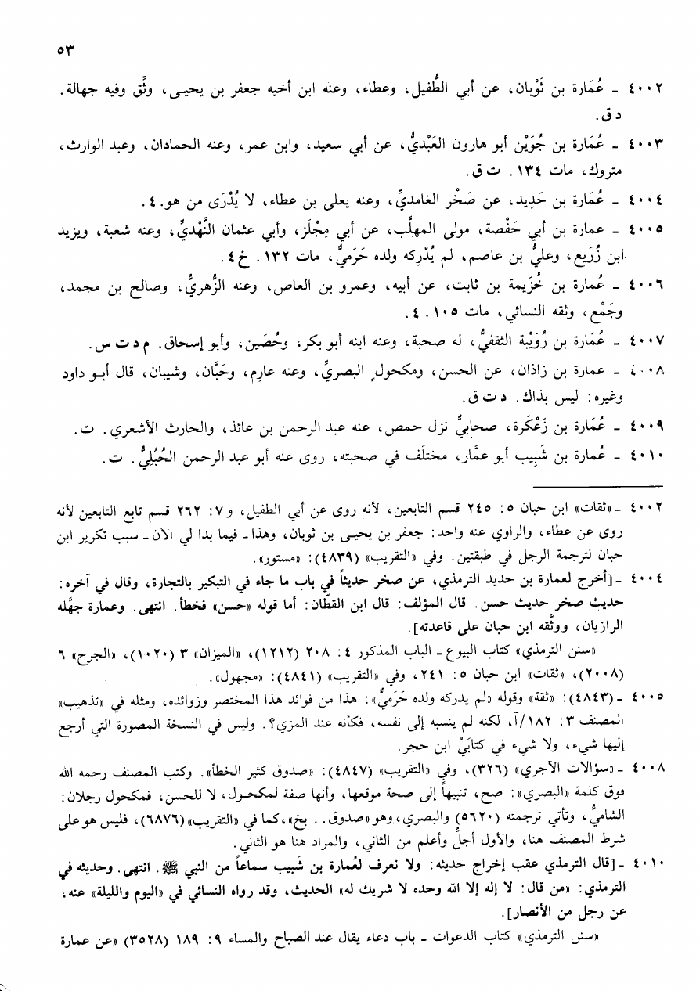 ٥٣
٤٠٠٢ ـ عُمَارة بن ثَوْبان، عن أبي الطُّفيل، وعطاء، وعنه ابن أخيه جعفر بن يحيى، وثِّق وفيه جهالة.
د ق.
٤٠٠٣ ـ عُمَارة بن جُوَيْن أبو هارون العَبْديُّ، عن أبي سعيد، وابن عمر، وعنه الحمادان، وعبد الوارث،
متروك، مات ١٣٤. ت ق.
٤٠٠٤ ـ عُمَارة بن حَدِيد، عن صَخْر الغامديِّ، وعنه يعلى بن عطاء، لا يُدْرَى من هو. ٤.
٤٠٠٥ ـ عمارة بن أبي حَفْصة، مولى المهلَّب، عن أبي مِجْلَز، وأبي عثمان النَّهْديِّ، وعنه شعبة، ويزيد
ابن زُرَيع، وعليُّ بن عاصم، لم يُدْركه ولده حَرَميٌّ، مات ١٣٢. خ ٤.
٤٠٠٦ ـ عُمارة بن خُزَيمة بن ثابت، عن أبيه، وعمرو بن العاص، وعنه الزُّهريُّ، وصالح بن محمد،
وجَمْع، وثقه النسائي، مات ١٠٥. ٤.
٤٠٠٧ ـ عُمَارة بن رُوَيْبة الثقفيُّ، له صحبة، وعنه ابنه أبو بكر، وحُصَين، وأبو إسحاق. م د ت س.
٤٠٠٨ ـ عمارة بن زاذان، عن الحسن، ومكحول البصريِّ، وعنه عارِم، وحَبَّان، وشيبان، قال أبو داود
وغيره: ليس بذاك. د ت ق.
٤٠٠٩ ـ عُمَارة بن زَعْكَرة، صحابيٌّ نزل حمص، عنه عبد الرحمن بن عائذ، والحارث الأشعري. ت.
٤٠١٠ ـ عُمارة بن شَبِيب أبو عمَّار، مختلَف في صحبته، روى عنه أبو عبد الرحمن الحُبُليُّ. ت.
٤٠٠٢ ـ «ثقات» ابن حبان ٥: ٢٤٥ قسم التابعين، لأنه روى عن أبي الطفيل، و ٧: ٢٦٢ قسم تابع التابعين لأنه
روى عن عطاء، والراوي عنه واحد: جعفر بن يحيى بن ثوبان، وهذا ـ فيما بدا لي الآن ـ سبب تكرير ابن
حبان لترجمة الرجل في طبقتين. وفي «التقريب» (٤٨٣٩): «مستور».
٤٠٠٤ ـ [أخرج لعمارة بن حديد الترمذي، عن صخر حديثاً في باب ما جاء في التبكير بالتجارة، وقال في آخره:
حديث صخر حديث حسن. قال المؤلف: قال ابن القطَّان: أما قوله «حسن» فخطأ. انتهى. وعمارة جهَّله
الرازيان، ووثَّقه ابن حبان على قاعدته].
«سنن الترمذي» كتاب البيوع ـ الباب المذكور ٤: ٢٠٨ (١٢١٢)، «الميزان» ٣ (١٠٢٠)، «الجرح» ٦
(٢٠٠٨)، «ثقات» ابن حبان ٥: ٢٤١، وفي «التقريب» (٤٨٤١): «مجهول».
٤٠٠٥ ـ (٤٨٤٣): «ثقة» وقوله «لم يدركه ولده حَرَميٌّ»: هذا من فوائد هذا المختصر وزوائده، ومثله في «تذهيب»
المصنف ٣: ١٨٢/آ، لكنه لم ينسبه إلى نفسه، فكأنه عند المزي؟. وليس في النسخة المصورة التي أرجع
إليها شيء، ولا شيء في كتابَيْ ابن حجر.
٤٠٠٨ ـ «سؤالات الآجري» (٣٢٦)، وفي «التقريب» (٤٨٤٧): «صدوق كثير الخطأ». وكتب المصنف رحمه الله
فوق كلمة «البصري»: صح، تنبيهاً إلى صحة موقعها، وأنها صفة لمكحول، لا للحسن، فمكحول رجلان:
الشاميُّ، وتأتي ترجمته (٥٦٢٠) والبصري، وهو «صدوق.. بخ»، كما في «التقريب» (٦٨٧٦)، فليس هو على
شرط المصنف هنا، والأول أجلُّ وأعلم من الثاني، والمراد هنا هو الثاني.
٤٠١٠ ـ [قال الترمذي عقب إخراج حديثه: ولا نعرف لعُمارة بن شَبيب سماعاً من النبي ﷺ. انتهى. وحديثه في
الترمذي: «من قال: لا إله إلا الله وحده لا شريك له» الحديث، وقد رواه النسائي في «اليوم والليلة» عنه،
عن رجل من الأنصار].
«سنن الترمذي» كتاب الدعوات ـ باب دعاء يقال عند الصباح والمساء ٩: ١٨٩ (٣٥٢٨) «عن عمارة